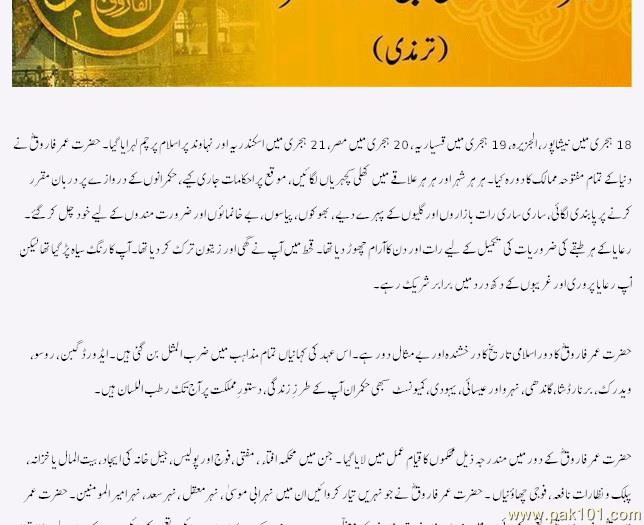 الفاروق
(ترمذی)
18 ہجری میں نیشاپور، الجزیرہ، 19 ہجری میں قیساریہ، 20 ہجری میں مصر، 21 ہجری میں اسکندریہ اور نہاوند پر اسلام پرچم لہرایا گیا۔ حضرت عمر فاروقؓ نے
دنیا کے تمام مفتوحہ ممالک کا دورہ کیا۔ ہر ہر شہر اور ہر ہر علاقے میں کھلی کچہریاں لگائیں، موقع پر احکامات جاری کیے، حکمرانوں کے دروازے پر دربان مقرر
کرنے پر پابندی لگائی، ساری ساری رات بازاروں اور گلیوں کے پہرے دیے، بھوکوں، پیاسوں، بے خانمائوں اور ضرورت مندوں کے لیے خود چل کر گئے۔
رعایا کے ہر طبقے کی ضروریات کی تکمیل کے لیے رات اور دن کا آرام چھوڑ دیا تھا۔ قحط میں آپ نے گھی اور زیتون ترک کر دیا تھا۔ آپ کا رنگ سیاہ پڑ گیا تھا لیکن
آپ رعایا پروری اور غریبوں کے دکھ درد میں برابر شریک رہے۔
حضرت عمر فاروقؓ کا دور اسلامی تاریخ کا درخشندہ اور بے مثال دور ہے۔ اس عہد کی کہانیاں تمام مذاہب میں ضرب المثل بن گئی ہیں۔ ایڈورڈ گبن، روسو،
ویدرک، برنارڈ شا، گاندھی، نہرو اور عیسائی، یہودی، کمیونسٹ سبھی حکمران آپ کے طرز زندگی، دستور مملکت پر آج تک رطب اللسان ہیں۔
حضرت عمر فاروقؓ کے دور میں مندرجہ ذیل محکموں کا قیام عمل میں لایا گیا۔ جن میں محکمہ افتاء، مفتی، فوج اور پولیس، جیل خانہ کی ایجاد، بیت المال یا خزانہ،
پبلک و نظارات نافعہ، فوجی چھاؤنیاں۔ حضرت عمر فاروقؓ نے جو نہریں تیار کروائیں ان میں نہر ابی موسیٰ، نہر معقل، نہر سعد، نہر امیر المومنین۔ حضرت عمر
www.pak101.com